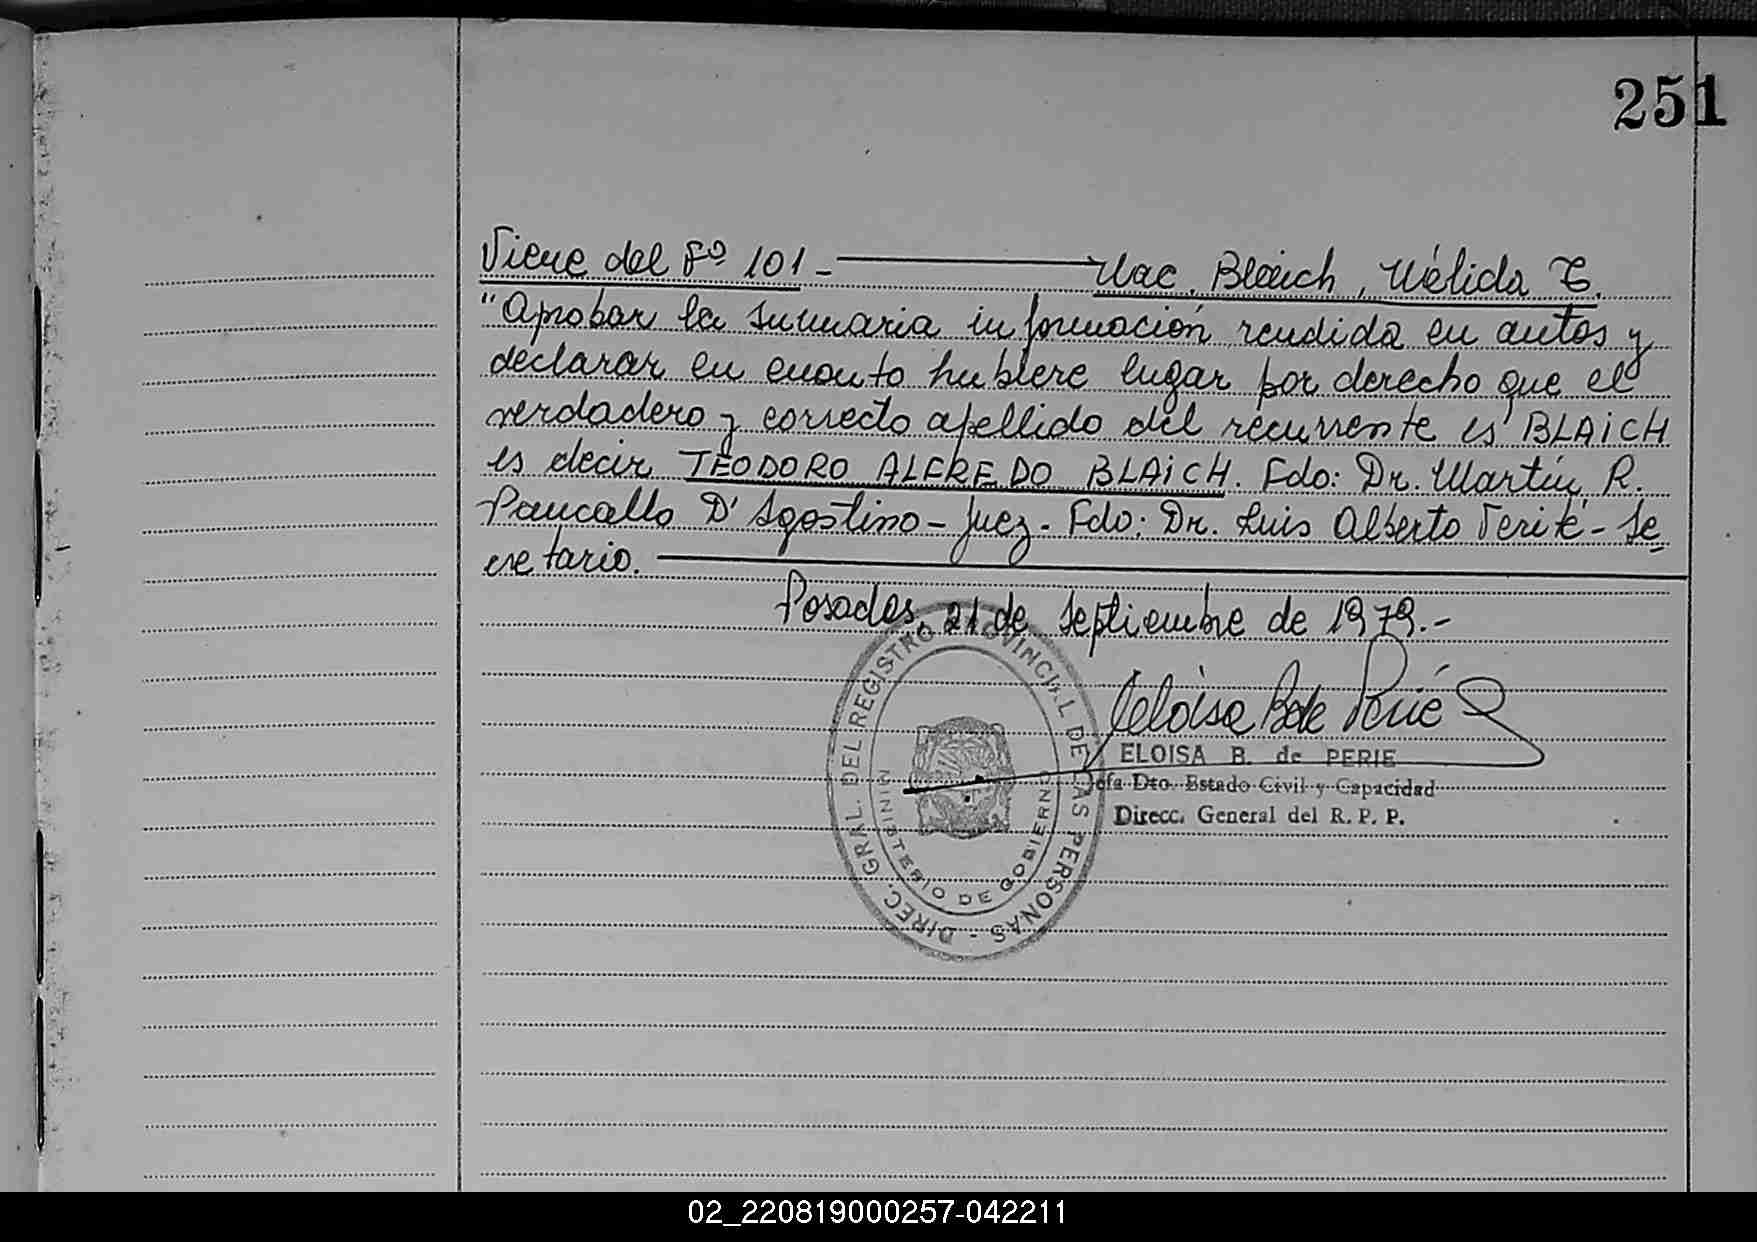 251
Viene del Fº 101.- Nac. Blaich, Nélida T.
"Aprobar la sumaria información rendida en autos y
declarar en cuanto hubiere lugar por derecho que el
verdadero y correcto apellido del recurrente es BLAICH
es decir TEODORO ALFREDO BLAICH. Fdo: Dr. Martín R.
Paucallo D'Agostino - Juez - Fdo: Dr. Luis Alberto Terite - Se
cretario.
Posadas, 21 de septiembre de 1979.-
Eloisa B de Perié
ELOISA B. de PERIE
Jefa Dto. Estado Civil y Capacidad
Direcc. General del R. P. P.
DIREC. GRAL. DEL REGISTRO PROVINCIAL DE LAS PERSONAS -
MINISTERIO DE GOBIERNO
02_220819000257-042211